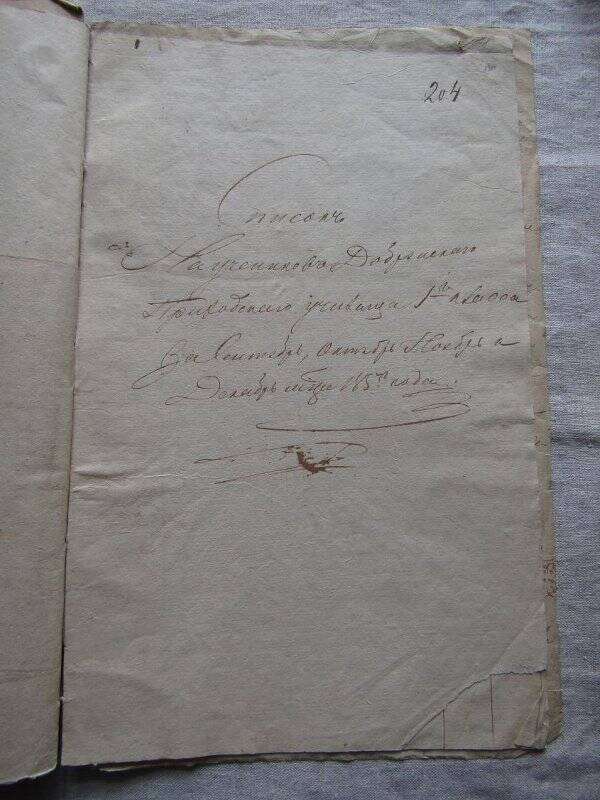 204
Списокъ
На учениковъ Добрянскаго
Приходскаго училища 1го класса
За Сентябрь, Октябрь Ноябрь и
Декабрь м-цы года.